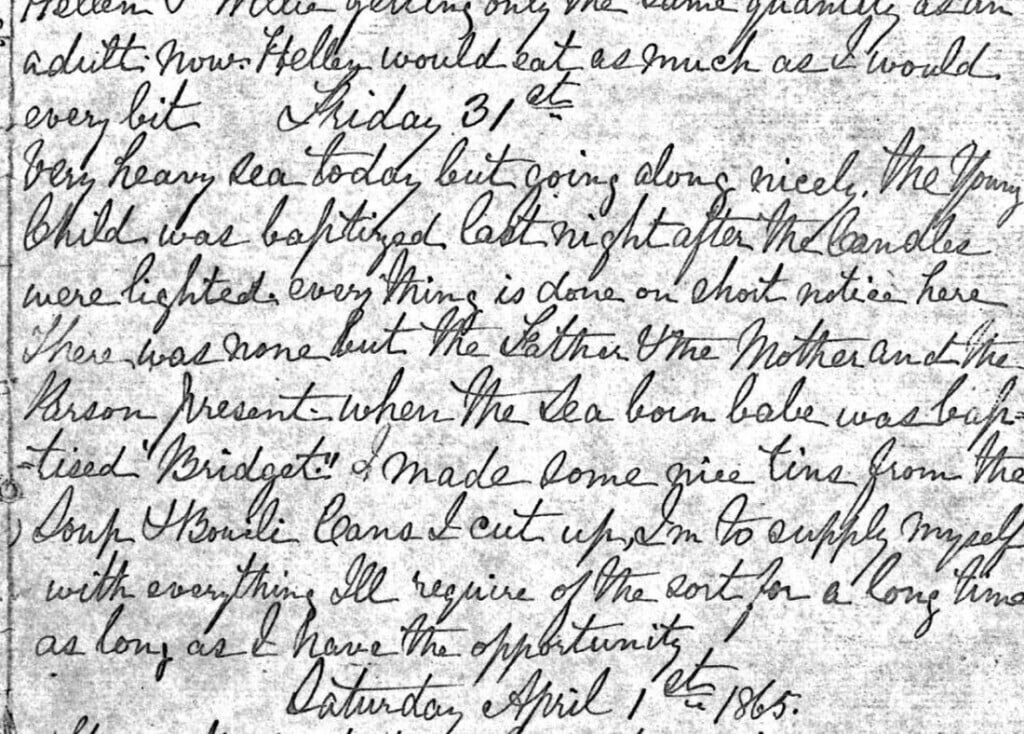 Hellen & Willie getting only the same quantity as an
adult. now. Hellen would eat as much as I would
every bit Friday 31st
Very heavy sea today but going along nicely. The Young
Child was baptized last night after the Candles
were lighted. every thing is done on short notice here
There was none but the Father & the Mother and the
Parson present. when the Sea born babe was bap=
=tised "Bridget." I made some nice tins from the
Soup & Bouili Cans I cut up, I'm to supply myself
with everything Ill require of the sort for a long time
as long as I have the opportunity
Saturday April 1st 1865.